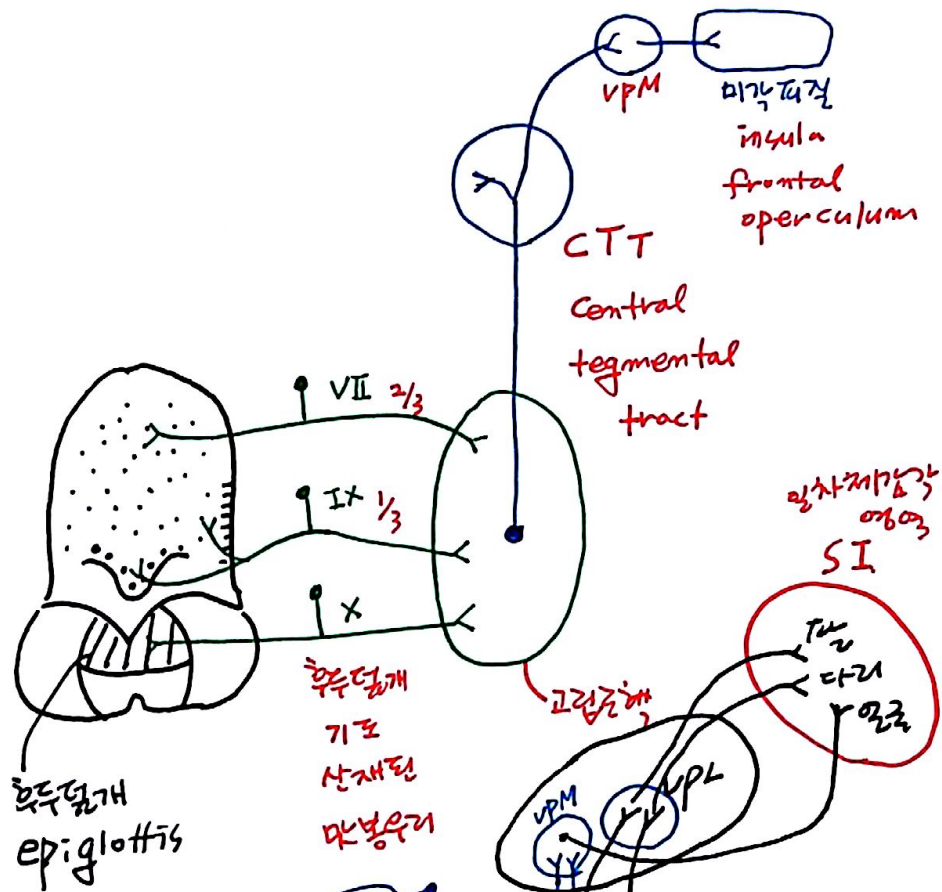 VPM
미각피질
insula
frontal
operculum
CTT
central
tegmental
tract
VII 2/3
IX 1/3
X
후두덮개
기도
산재된
맛봉우리
고립로핵
후두덮개
epiglottis
일차체감각
영역
SI
팔
다리
얼굴
VPM
VPL